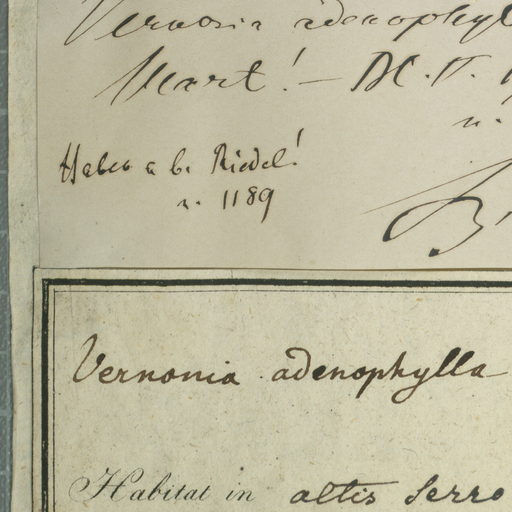 Vernonia adenophyl
Mart! — DC.
n.
Habeo a b. Riedel!
n. 1189
Vernonia adenophylla
Habitat in altis Serro